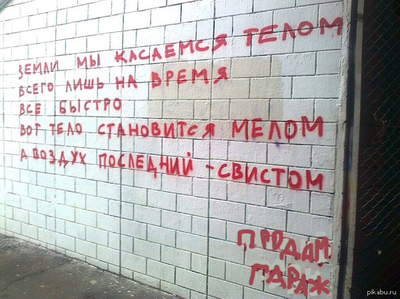 ЗЕМЛИ МЫ КАСАЕМСЯ ТЕЛОМ
ВСЕГО ЛИШЬ НА ВРЕМЯ
ВСЕ БЫСТРО
ВОТ ТЕЛО СТАНОВИТСЯ МЕЛОМ
А ВОЗДУХ ПОСЛЕДНИЙ - СВИСТОМ
ПРОДАМ
ГАРАЖ
pikabu.ru